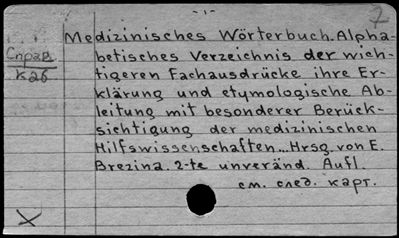 -1-
7
Medizinisches Wörterbuch. Alpha-
Справ. betisches Verzeichnis der wich-
каб tigeren Fachausdrücke ihre Er-
klärung und etymologische Ab-
leitung mit besonderer Berück-
sichtigung der medizinischen
Hilfswissenschaften...Hrsg. von E.
Brezina. 2-te unveränd. Aufl.
см. след. карт.